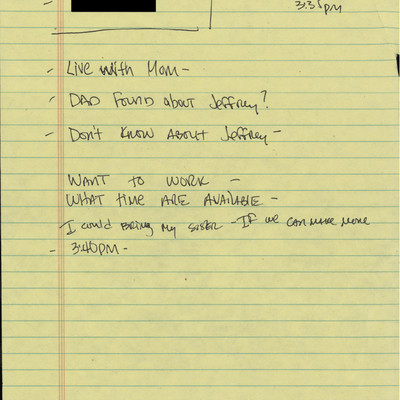 - 3:35pm
- Live with Mom -
- DAD FOUND ABOUT Jeffrey?
- Don't KNOW ABOUT Jeffrey -
WANT TO WORK -
WHAT TIME ARE AVAILABLE -
I could BRING my SISTER - IF WE CAN MAKE MORE
- 3:40PM -